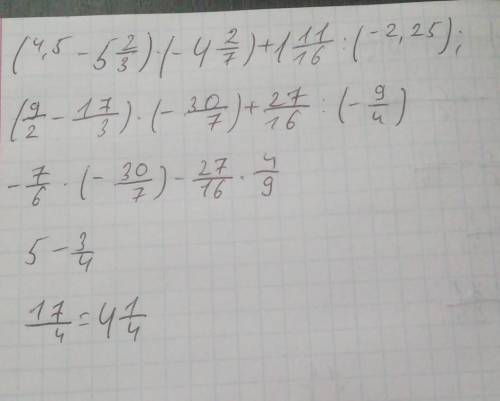 (4,5 - 5 2/3) · (-4 2/7) + 1 11/16 : (-2,25);
(9/2 - 17/3) · (-30/7) + 27/16 : (-9/4)
-7/6 · (-30/7) - 27/16 · 4/9
5 - 3/4
17/4 = 4 1/4